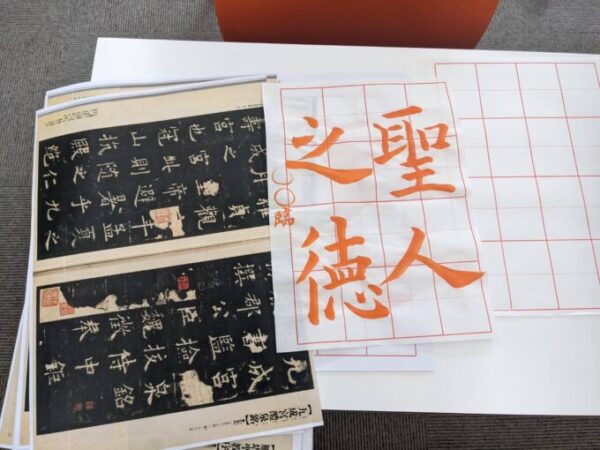 聖人
之徳
〇〇臨
維貞觀年孟夏之
月帝避暑乎九
成之宮此則随之仁
壽宮也冠山抗殿
九成宮泉銘
書監檢校侍中鉅
郡公臣魏徵奉
撰
【九成宮醴泉銘】